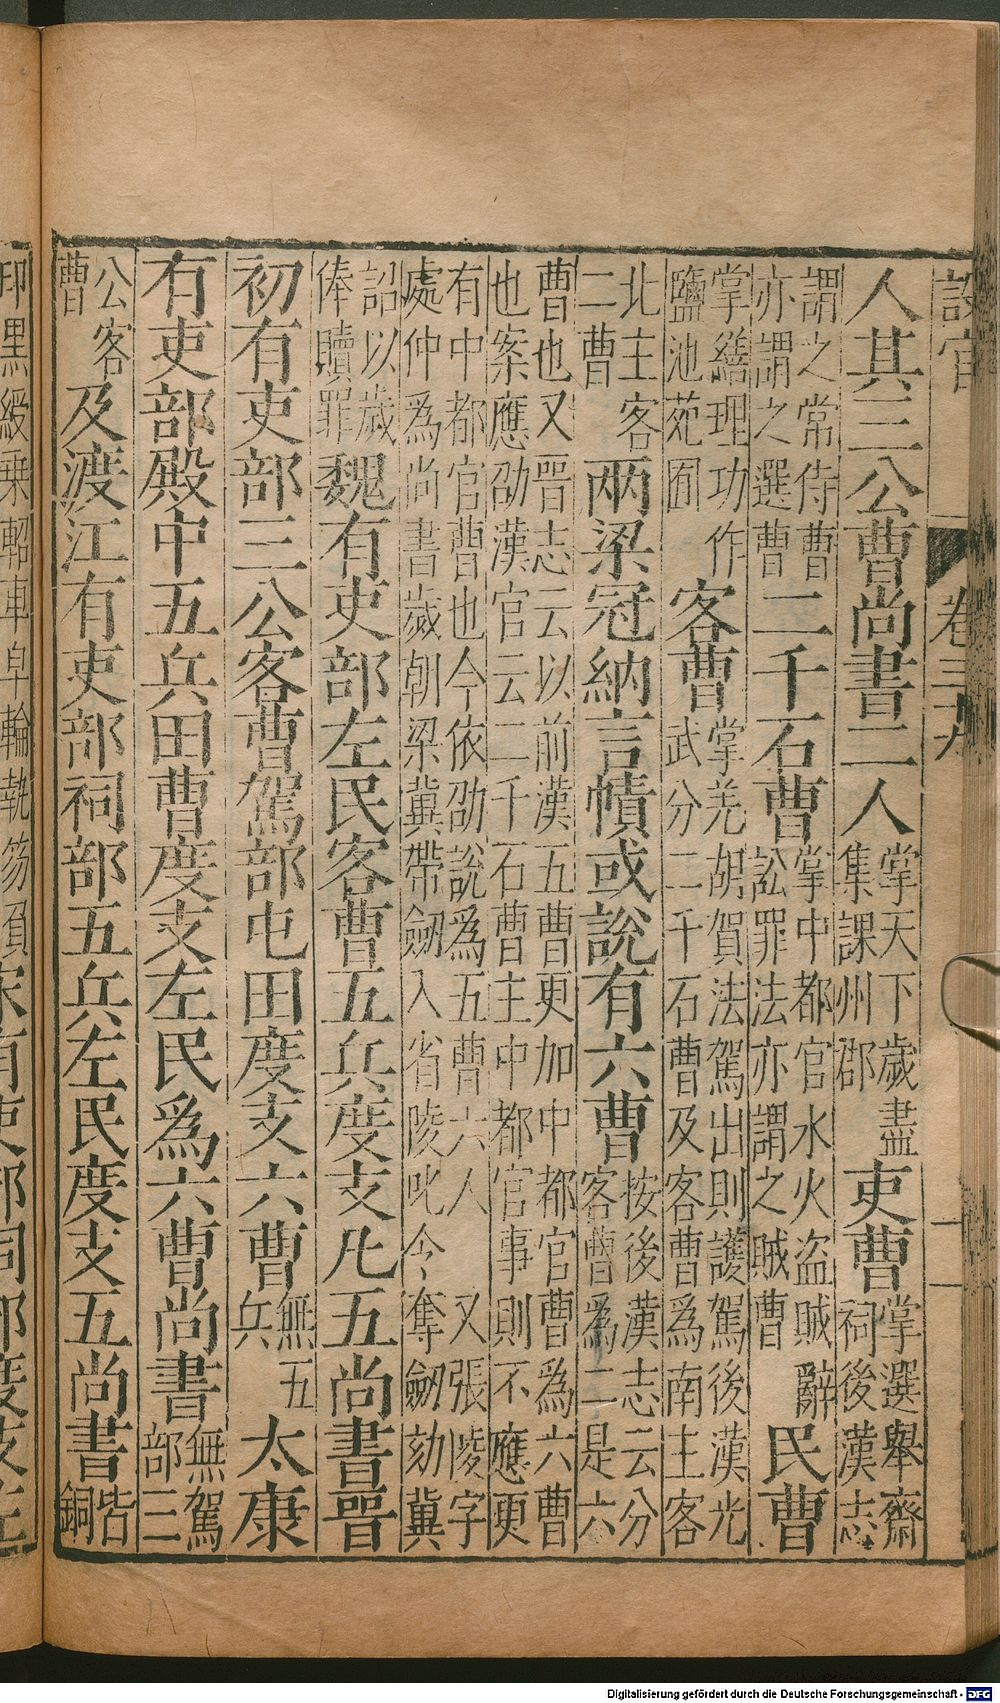 設官 卷三
人其三公曹尚書二人掌天下歲盡集課州郡吏曹掌選舉齋祠後漢志
謂之常侍曹亦謂之選曹二千石曹掌中都官水火盜賊辭訟罪法亦謂之賊曹民曹
掌繕理功作鹽池苑囿客曹掌羌胡賀法駕出則護駕後漢光武分二千石曹及客曹爲南主客
北主客二曹兩梁冠納言幘或說有六曹按後漢志云分客曹爲二是六
曹也又晉志云以前漢五曹更加中都官曹爲六曹也案應劭漢官云二千石曹主中都官事則不應更
有中都官曹也今依劭說爲五曹六人又張陵字處仲爲尚書歲朝梁冀帶劒入省陵叱令奪劒劾冀
詔以歲俸贖罪魏有吏部左民客曹五兵度支凡五尚書晉
初有吏部三公客曹駕部屯田度支六曹無五兵太康
有吏部殿中五兵田曹度支左民爲六曹尚書無駕部三
公客曹及渡江有吏部祠部五兵左民度支五尚書皆銅
印黑綬乗軺車皁輪執笏負宋有吏部祠部度支左
Digitalisierung gefördert durch die Deutsche Forschungsgemeinschaft - DFG